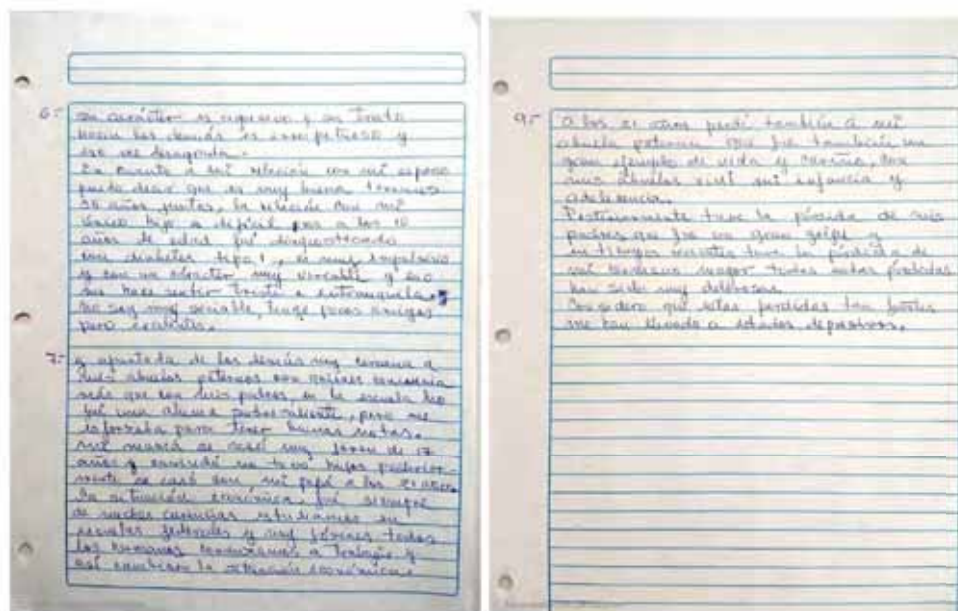 6.- su carácter es agresivo y su trato
hacia los demás es irrespetuoso y
eso me desagrada.
En cuanto a mi relación con mi esposo
puedo decir que es muy buena tenemos
30 años juntos, la relación con mi
único hijo es difícil pues a los 10
años de edad fué diagnosticado
con diabetes tipo 1, es muy impulsivo
y con un carácter muy variable y eso
me hace sentir triste e intranquila.
No soy muy sociable, tengo pocos amigos
pero
7.- y apartada de los demás muy cercana a
mis abuelos paternos con quienes convivía
más que con mis padres, en la escuela no
fuí una alumna sobresaliente, pero me
esforzaba para tener buenas notas.
Mi mamá se casó muy joven de 17
años y enviudó no tuvo hijos posterior-
mente se casó con mi papá a los
La situación económica, fué siempre
de muchas carencias estudiamos en
escuelas federales y muy jóvenes todos
los hermanos comenzamos a trabajar y
así cambiaron la situación económica.
9.- a los 21 años perdí también a mi
abuela paterna que fue también un
gran ejemplo de vida y cariño, con
mis abuelos viví mi infancia y
adolescencia.
Posteriormente tuve la pérdida de mis
padres que fue un gran golpe y
en tiempos recientes tuve la pérdida de
mi hermano mayor todas estas pérdidas
han sido muy dolorosas.
Considero que estas perdidas tan fuertes
me han llevado a estados depresivos.